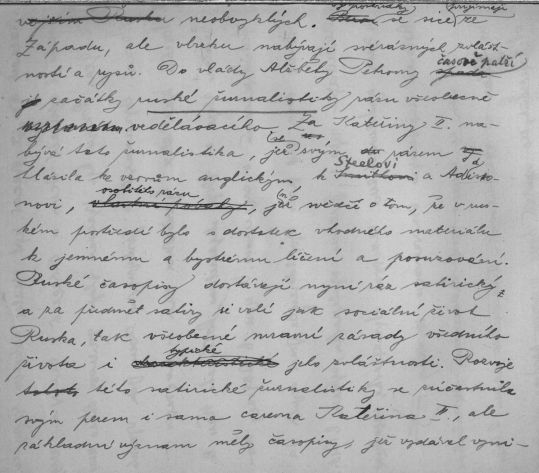 neobvyklých. se sice ze přijímají
Západu, ale vbrzku nabývají svérázných zvlášt-
ností a rysů. Do vlády Alžběty Petrovny časově patří
začátky ruské žurnalistiky rázu všeobecně
vzdělávacího. Za Kateřiny II. na-
bývá tato žurnalistika, jež se svým rázem
hlásila k vzorům anglickým, k Steelovi a Addiso-
novi, osobitého rázu, jenž svědčí o tom, že v rus-
kém portředí bylo s dostatek vhodného materiálu
k jemnému a bystrému líčení a posuzování.
Ruské časopisy dostávají nyní ráz satirický,
a za předmět satiry si volí jak sociální život
Ruska, tak všeobecné mravní zásady všedního
života i typické jeho zvláštnosti. Rozvoje
této satirické žurnalistiky se zúčastnila
svým perem i sama carevna Kateřina II., ale
základní význam měly časopisy, jež vydával vyni-